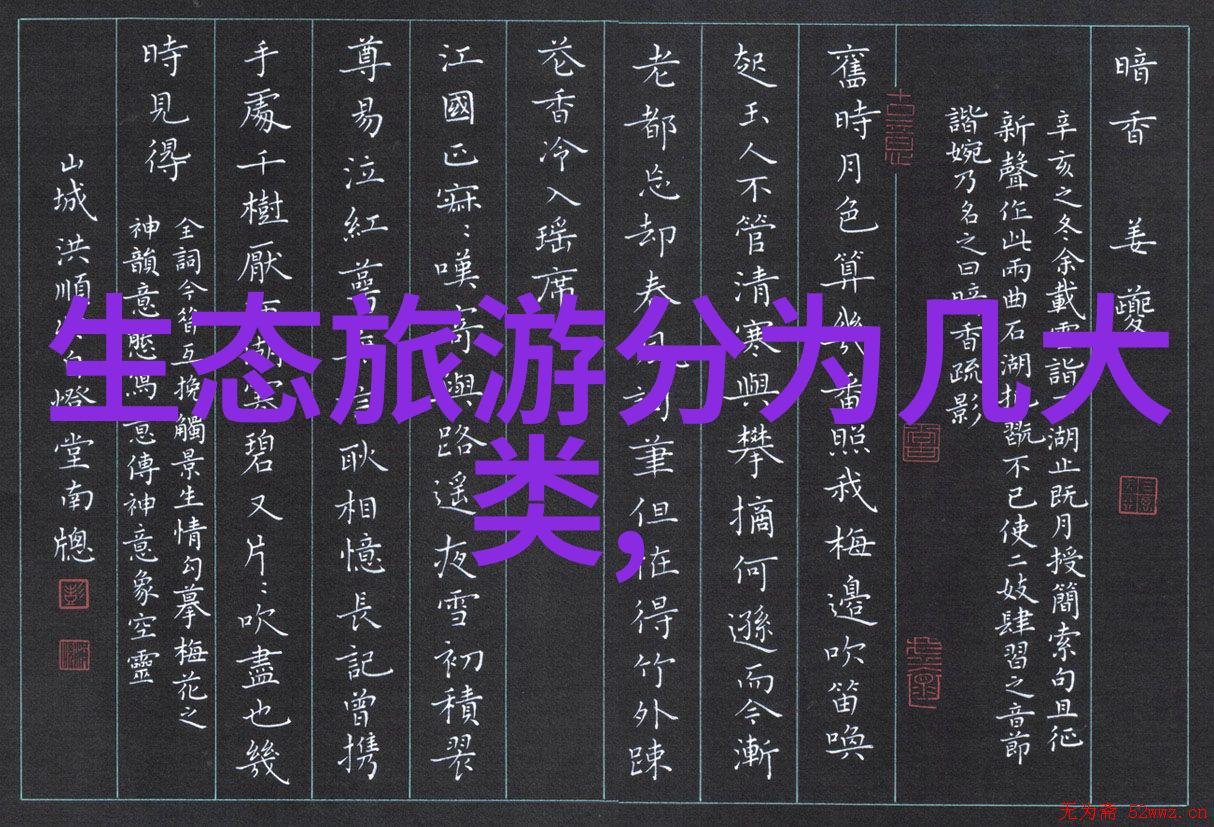 暗香 姜夔
辛亥之冬余載雪詣石湖止既月授簡索句且征
新聲作此兩曲石湖把翫不已使二妓肆習之音節
諧婉乃名之曰暗香疏影
舊時月色算幾番照我梅邊吹笛喚
起玉人不管清寒與攀摘何遜而今漸
老都忘却春風詞筆但怪得竹外疎
花香冷入瑤席
江國正寂:嘆寄與路遙夜雪初積翠
尊易泣紅萼無言耿相憶長記曾携
手處千樹壓西湖寒碧又片:吹盡也幾
時見得
全詞今昔互挽觸景生情勾摹梅花之
神韻意態寫意傳神意象空靈
山城洪順 燈堂南牕
古意
生态旅游分为几大
类,
无为斋 52wwz.cn